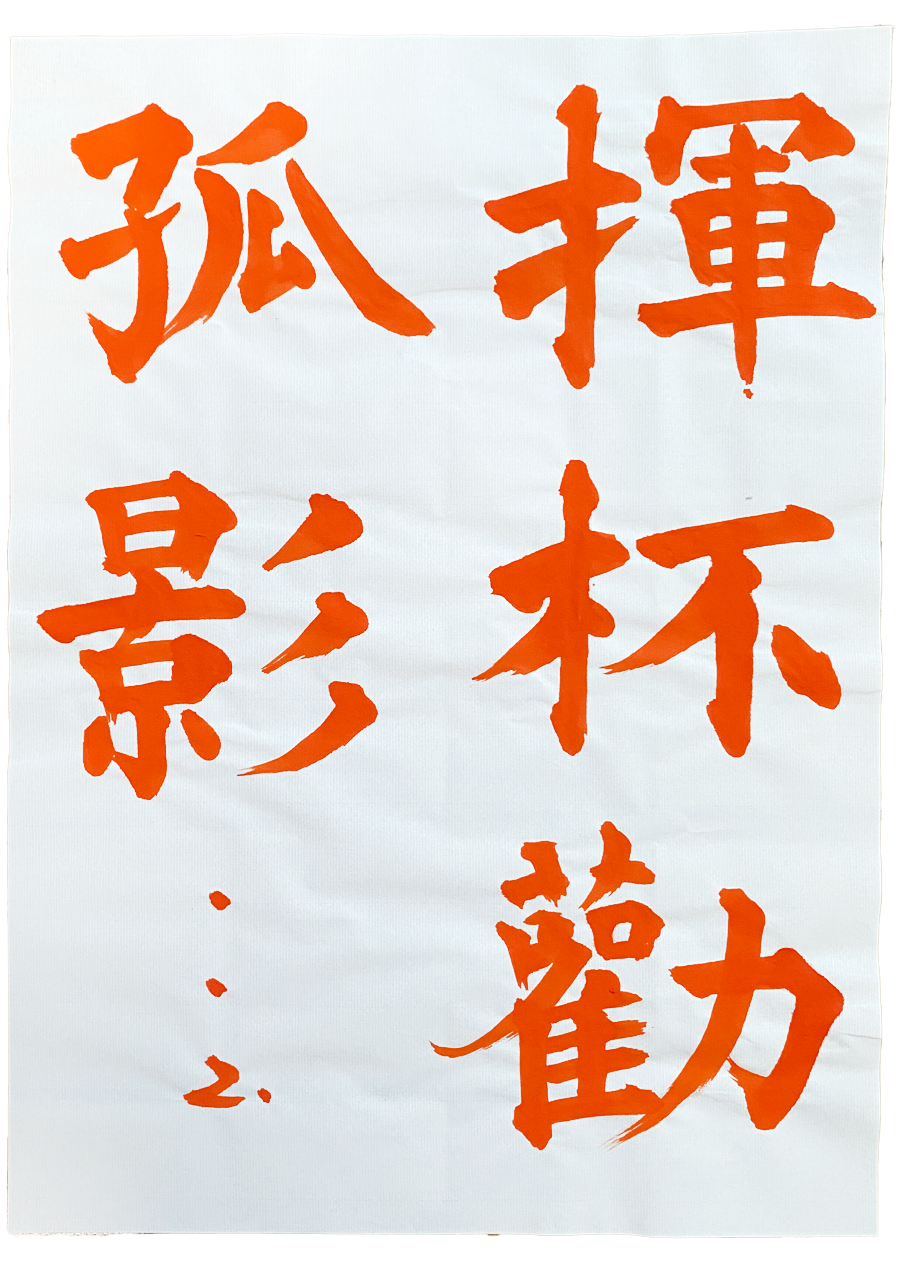 揮杯勸
孤影